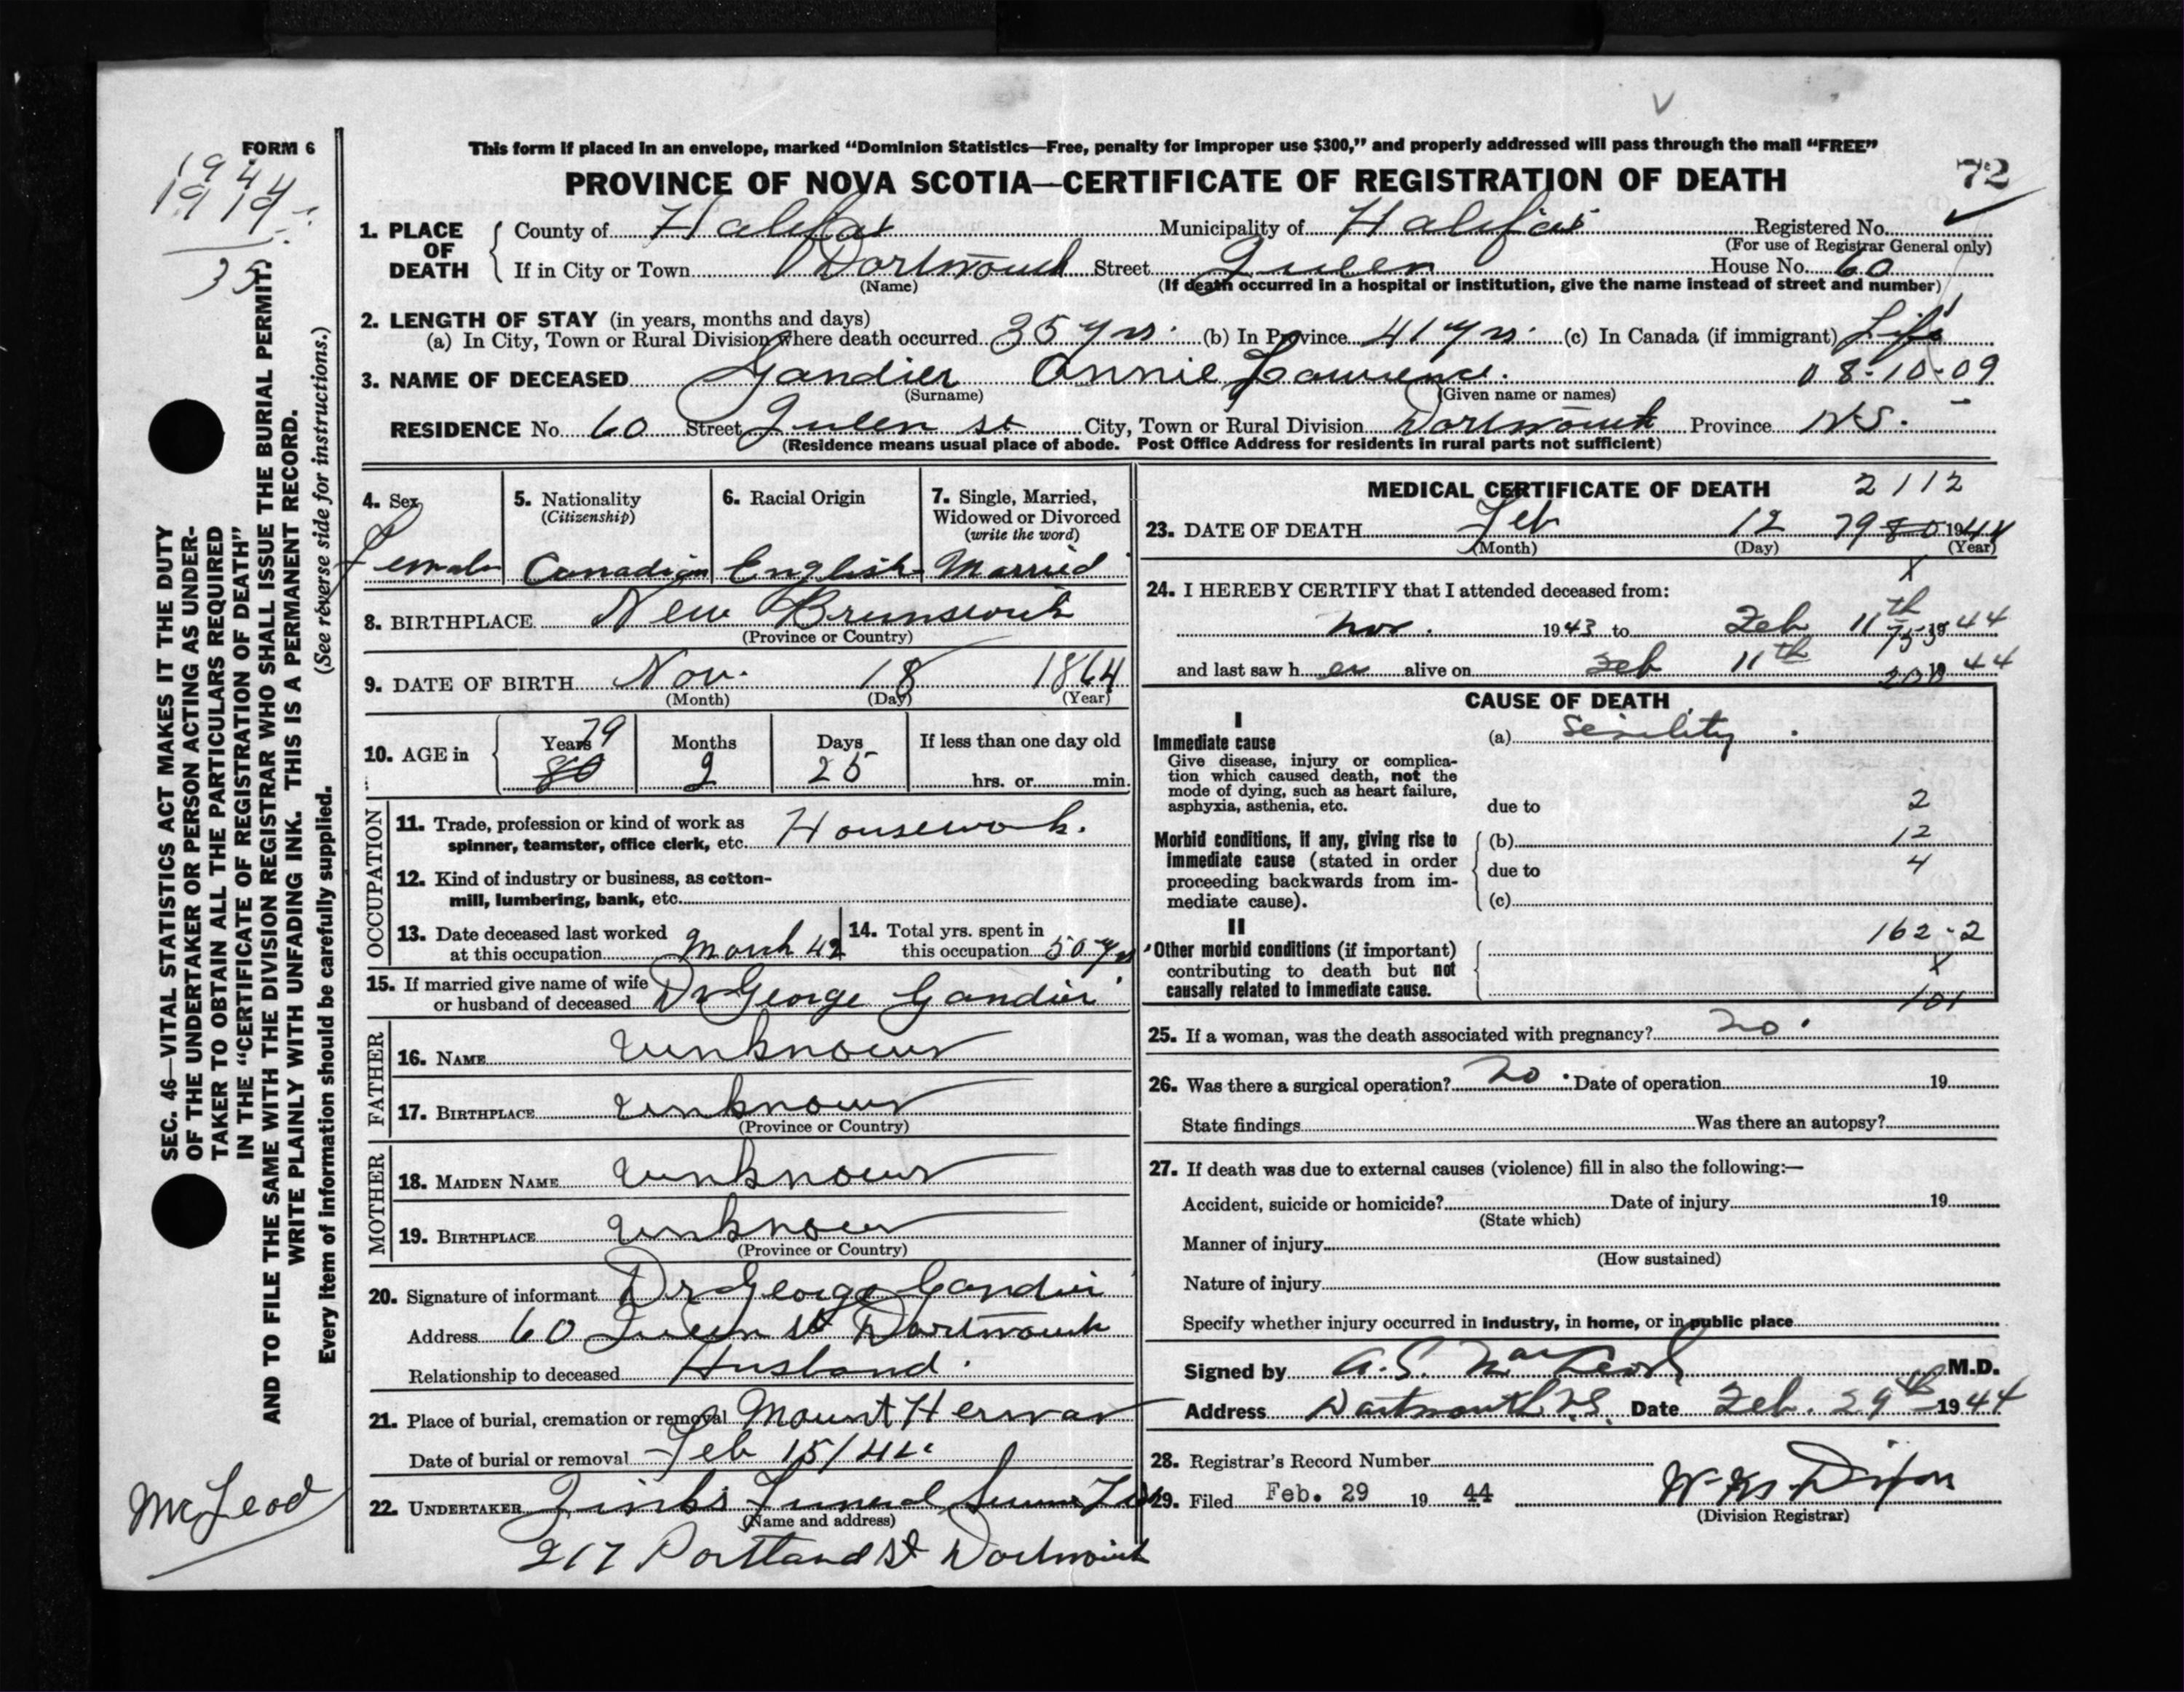 FORM 6
1944
1919
35
This form if placed in an envelope, marked “Dominion Statistics—Free, penalty for improper use $300,” and properly addressed will pass through the mail “FREE”
PROVINCE OF NOVA SCOTIA—CERTIFICATE OF REGISTRATION OF DEATH 72
1. PLACE OF DEATH County of Halifax Municipality of Halifax Registered No.
(For use of Registrar General only)
If in City or Town Dartmouth Street Queen House No. 60
(Name) (If death occurred in a hospital or institution, give the name instead of street and number)
2. LENGTH OF STAY (in years, months and days)
(a) In City, Town or Rural Division where death occurred 35 yrs. (b) In Province 41 yrs. (c) In Canada (if immigrant) Life
3. NAME OF DECEASED Gandier Annie Lawrence. 08-10-09
(Surname) (Given name or names)
RESIDENCE No. 60 Street Queen st City, Town or Rural Division Dartmouth Province N.S.
(Residence means usual place of abode. Post Office Address for residents in rural parts not sufficient)
SEC. 46—VITAL STATISTICS ACT MAKES IT THE DUTY
OF THE UNDERTAKER OR PERSON ACTING AS UNDER-
TAKER TO OBTAIN ALL THE PARTICULARS REQUIRED
IN THE “CERTIFICATE OF REGISTRATION OF DEATH”
AND TO FILE THE SAME WITH THE DIVISION REGISTRAR WHO SHALL ISSUE THE BURIAL PERMIT.
WRITE PLAINLY WITH UNFADING INK. THIS IS A PERMANENT RECORD.
Every item of information should be carefully supplied. (See reverse side for instructions.)
McLeod
4. Sex Female
5. Nationality (Citizenship) Canadian
6. Racial Origin English
7. Single, Married, Widowed or Divorced (write the word) Married
8. BIRTHPLACE New Brunswick
(Province or Country)
9. DATE OF BIRTH Nov. 18 1864
(Month) (Day) (Year)
10. AGE in Years 79 80 Months 2 Days 25 If less than one day old
hrs. or min.
OCCUPATION
11. Trade, profession or kind of work as
spinner, teamster, office clerk, etc. Housework.
12. Kind of industry or business, as cotton-
mill, lumbering, bank, etc.
13. Date deceased last worked
at this occupation March 42
14. Total yrs. spent in
this occupation 50 yrs
15. If married give name of wife
or husband of deceased Dr George Gandier
FATHER
16. NAME Unknown
17. BIRTHPLACE Unknown
(Province or Country)
MOTHER
18. MAIDEN NAME Unknown
19. BIRTHPLACE Unknown
(Province or Country)
20. Signature of informant Dr George Gandier
Address 60 Queen st Dartmouth
Relationship to deceased Husband.
21. Place of burial, cremation or removal Mount Hermon
Date of burial or removal Feb 15/44
22. UNDERTAKER Zinks Funeral Service Ltd
(Name and address)
217 Portland St Dartmouth
MEDICAL CERTIFICATE OF DEATH 2112
23. DATE OF DEATH Feb 12 79 80 1944
(Month) (Day) (Year)
X
24. I HEREBY CERTIFY that I attended deceased from:
Nov. 1943 to Feb 11th 1944
and last saw her alive on Feb 11th 1944
CAUSE OF DEATH
I
Immediate cause (a) Senility.
Give disease, injury or complica-
tion which caused death, not the
mode of dying, such as heart failure,
asphyxia, asthenia, etc. due to 2
Morbid conditions, if any, giving rise to (b) 12
immediate cause (stated in order due to 4
proceeding backwards from im-
mediate cause). (c)
II 162-2
Other morbid conditions (if important)
contributing to death but not X
causally related to immediate cause. 101
25. If a woman, was the death associated with pregnancy? No.
26. Was there a surgical operation? No. Date of operation 19
State findings Was there an autopsy?
27. If death was due to external causes (violence) fill in also the following:—
Accident, suicide or homicide? Date of injury 19
(State which)
Manner of injury
(How sustained)
Nature of injury
Specify whether injury occurred in industry, in home, or in public place
Signed by A.S. MacLeod M.D.
Address Dartmouth N.S. Date Feb. 29th 1944
28. Registrar’s Record Number
29. Filed Feb. 29 19 44 Dixon
(Division Registrar)